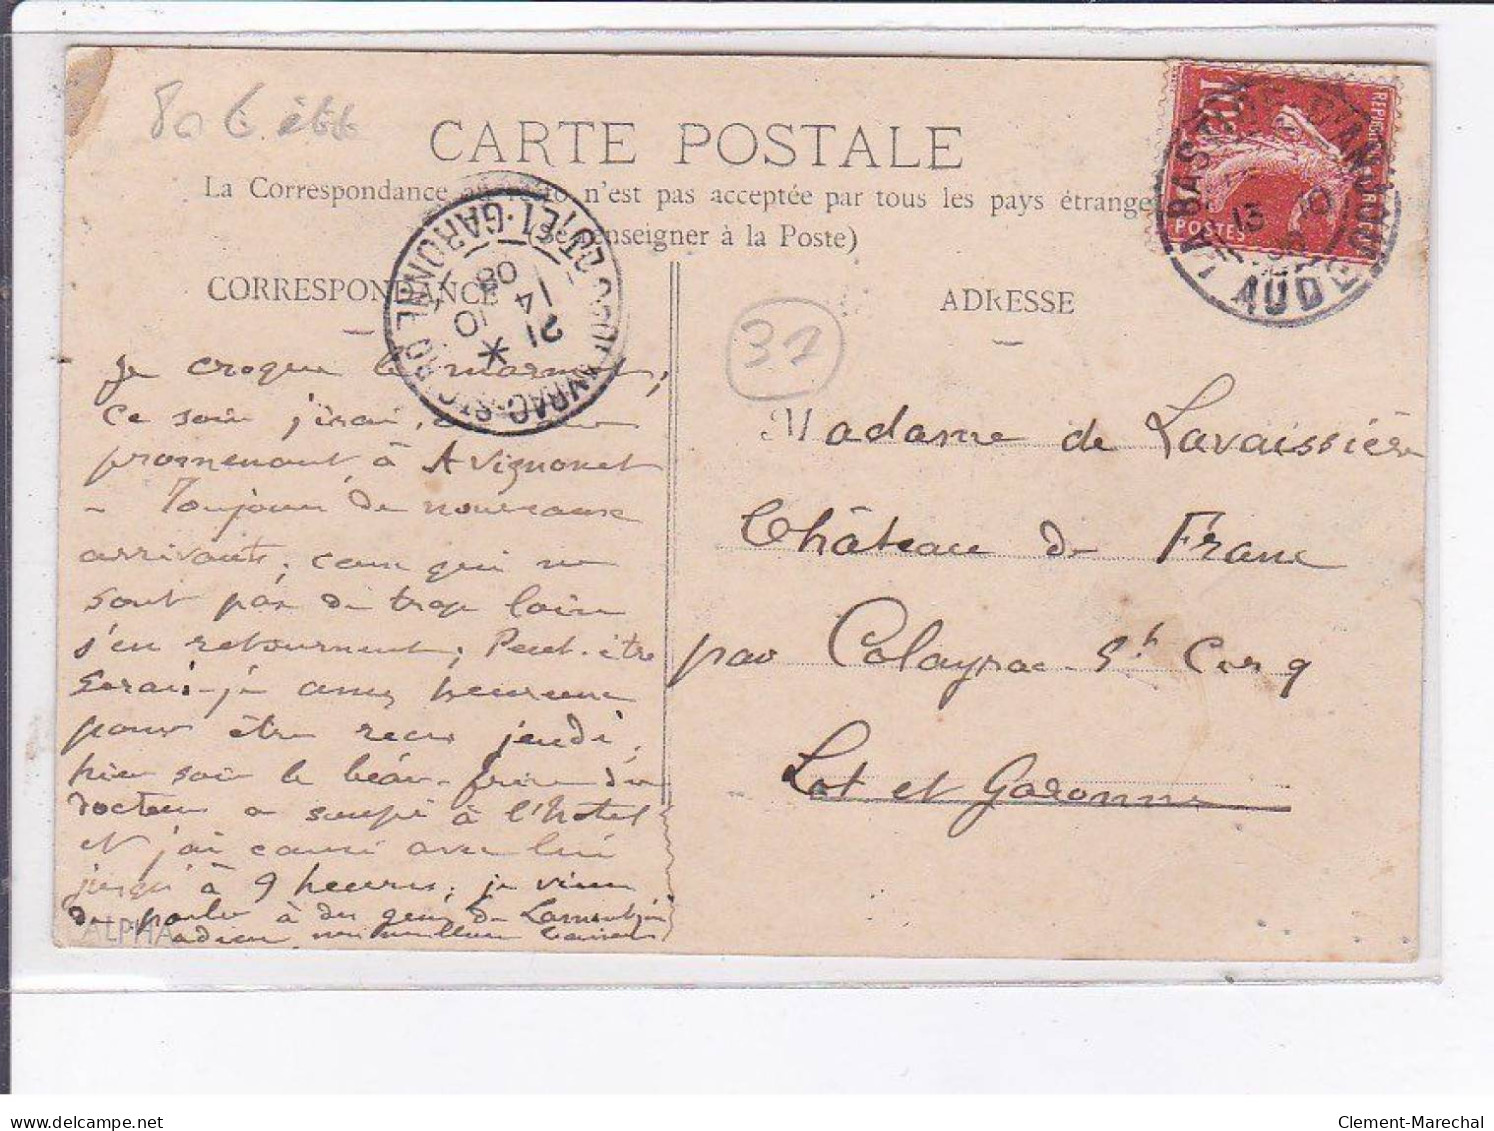 80 €
CARTE POSTALE
La Correspondance au recto n'est pas acceptée par tous les pays étrange
(Se renseigner à la Poste)
CORRESPONDANCE
ADRESSE
37
10
POSTES
LABASTIDE D'ANJOU
13 10
AUDE
COLAYRAC-ST CIRQ
LOT-ET-GARONNE
21
14 10
08
Je croque le marmot;
Ce soir j'irai,
promenant à Avignonet
- Toujours de nouveaux
arrivants, ceux qui ne
sont pas de trop loin
s'en retournent; Peut-être
serais-je assez heureuse
pour être reçu jeudi,
hier soir le beau-frère du
docteur a soupé à l'hôtel
et j'ai causé avec lui
jusqu'à 9 heures; je viens
de parler à des gens de
adieu, mes meilleurs baisers
ALPHA
Madame de Lavaissière
Château de Franc
par Colayrac St Cirq
Lot et Garonne
Clement-Marechal
www.delcampe.net